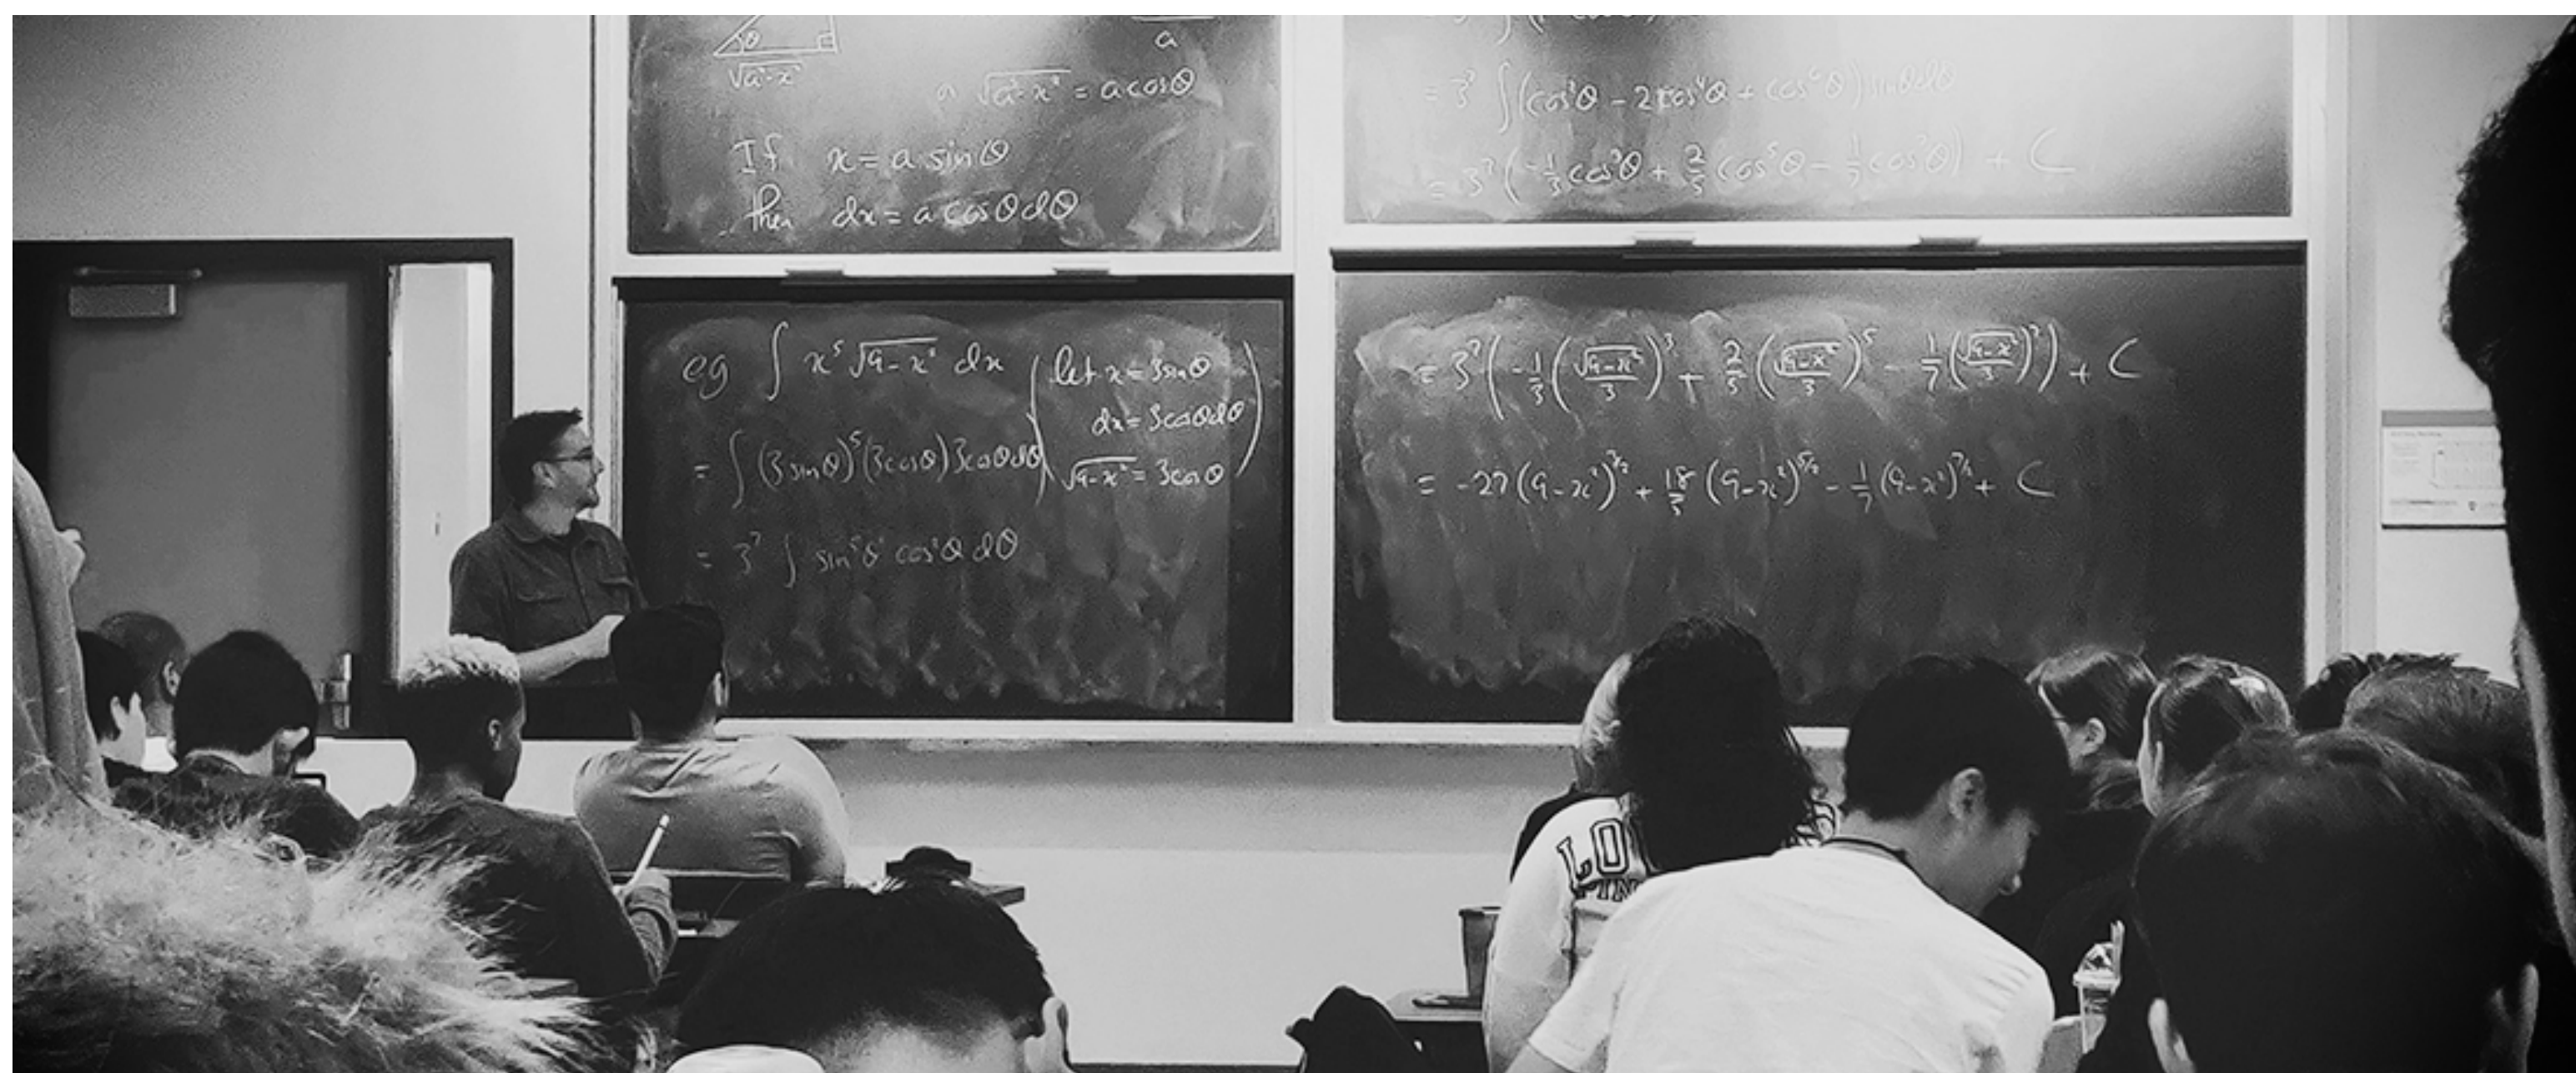 θ
√a²-x²
a
a √a²-x² = a cosθ
If x = a sinθ
then dx = a cosθ dθ
eg ∫ x⁵ √9-x² dx (let x = 3sinθ
dx = 3cosθdθ
= ∫ (3 sinθ)⁵ (3cosθ) 3cosθdθ
√9-x² = 3cosθ)
= 3⁷ ∫ sin⁵θ cos²θ dθ
= 3⁷ ∫ (cos²θ - 2cos⁴θ + cos⁶θ) sinθdθ
= 3⁷ (-1/3 cos³θ + 2/5 cos⁵θ - 1/7 cos⁷θ) + C
= 3⁷ (-1/3 (√9-x²/3)³ + 2/5 (√9-x²/3)⁵ - 1/7 (√9-x²/3)⁷) + C
= -27 (9-x²)^3/2 + 18/5 (9-x²)^5/2 - 1/7 (9-x²)^7/2 + C
LO